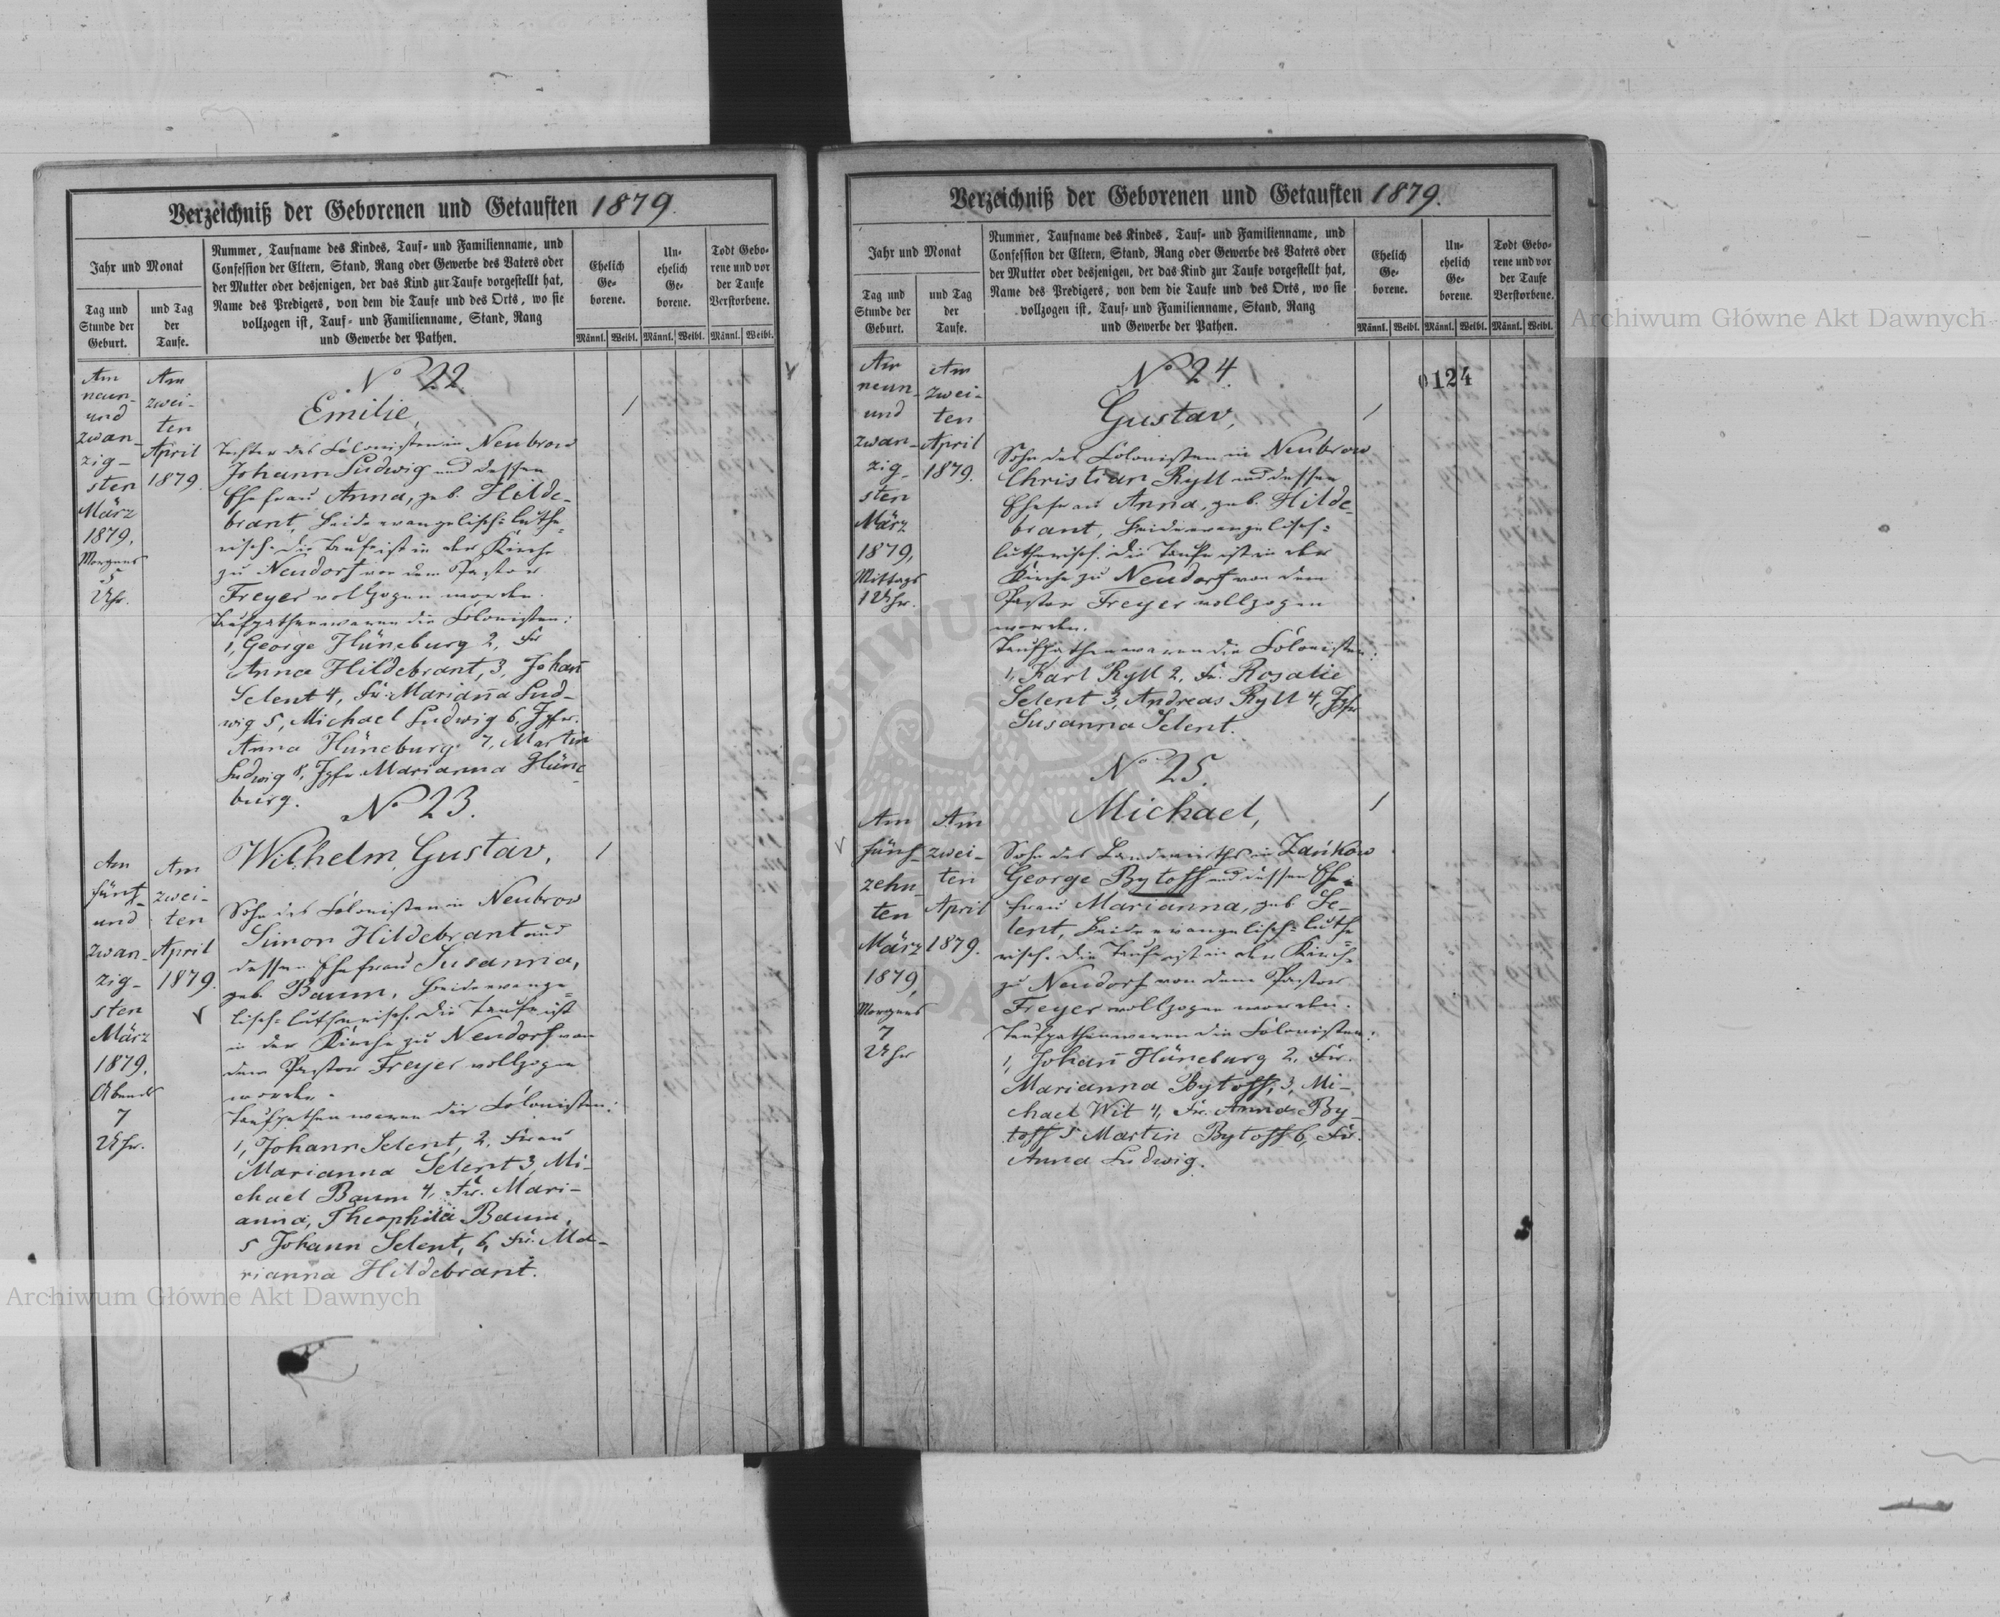 Verzeichniß der Geborenen und Getauften 1879.
Jahr und Monat
Tag und
Stunde der
Geburt.
und Tag
der
Taufe.
Nummer, Taufname des Kindes, Tauf- und Familienname, und
Confession der Eltern, Stand, Rang oder Gewerbe des Vaters oder
der Mutter oder desjenigen, der das Kind zur Taufe vorgestellt hat,
Name des Predigers, von dem die Taufe und des Orts, wo sie
vollzogen ist, Tauf- und Familienname, Stand, Rang
und Gewerbe der Pathen.
Ehelich
Ge-
borene.
Un-
ehelich
Ge-
borene.
Todt Gebo-
rene und vor
der Taufe
Verstorbene.
Männl. Weibl. Männl. Weibl. Männl. Weibl.
Am
neun-
und
zwan-
zig-
sten
März
1879,
Morgens
5
Uhr.
Am
zwei-
ten
April
1879.
No 22.
Emilie,
Tochter des Colonisten in Neubrow
Johann Ludwig und dessen
Ehefrau Anna, geb. Hilde-
brant, beide evangelisch-luthe-
risch. Die Taufe ist in der Kirche
zu Neudorf von dem Pastor
Freyer vollzogen worden.
Taufpathen waren die Colonisten:
1, George Hüneburg 2, Fr
Anna Hildebrant, 3, Johan̄
Selent 4, Fr. Marian̄a Lud-
wig 5, Michael Ludwig 6, Jgfr.
Anna Hüneburg 7, Martin
Ludwig 8, Jgfr Marianna Hüne
burg.
Am
fünf-
und
zwan-
zig-
sten
März
1879,
Abends
7
Uhr.
Am
zwei-
ten
April
1879.
No 23.
Wilhelm Gustav,
Sohn des Colonisten in Neubrow
Simon Hildebrant und
dessen Ehefrau Susanna,
geb. Baum, beide evange-
lisch-lutherisch. Die Taufe ist
in der Kirche zu Neudorf von
dem Pastor Freyer vollzogen
worden.
Taufpathen waren die Colonisten:
1, Johann Selent, 2, Frau
Marianna Selent 3, Mi-
chael Baum 4, Fr. Mari-
anna, Theophila Baum,
5 Johann Selent, 6, Fr. Ma-
rianna Hildebrant.
Verzeichniß der Geborenen und Getauften 1879.
Jahr und Monat
Tag und
Stunde der
Geburt.
und Tag
der
Taufe.
Nummer, Taufname des Kindes, Tauf- und Familienname, und
Confession der Eltern, Stand, Rang oder Gewerbe des Vaters oder
der Mutter oder desjenigen, der das Kind zur Taufe vorgestellt hat,
Name des Predigers, von dem die Taufe und des Orts, wo sie
vollzogen ist, Tauf- und Familienname, Stand, Rang
und Gewerbe der Pathen.
Ehelich
Ge-
borene.
Un-
ehelich
Ge-
borene.
Todt Gebo-
rene und vor
der Taufe
Verstorbene.
Männl. Weibl. Männl. Weibl. Männl. Weibl.
0124
Am
neun-
und
zwan-
zig-
sten
März
1879,
Mittags
1 Uhr.
Am
zwei-
ten
April
1879.
No 24.
Gustav,
Sohn des Colonisten in Neubrow
Christian Ryll und dessen
Ehefrau Anna, geb. Hilde-
brant, beide evangelisch-
lutherisch. Die Taufe ist in der
Kirche zu Neudorf von dem
Pastor Freyer vollzogen
worden.
Taufpathen waren die Colonisten:
1, Karl Ryll 2, Fr. Rosalie
Selent 3, Andreas Ryll 4, Jgfr
Susanna Selent.
Am
fünf-
zehn-
ten
März
1879,
Morgens
7
Uhr
Am
zwei-
ten
April
1879.
No 25.
Michael,
Sohn des Landwirths in Zankow
George Bytoff und dessen Ehe-
frau Marianna, geb. Se-
lent, beide evangelisch-luthe
risch. Die Taufe ist in der Kirche
zu Neudorf von dem Pastor
Freyer vollzogen worden.
Taufpathen waren die Colonisten:
1, Johan̄ Hüneburg 2, Fr.
Marianna Bytoff, 3, Mi-
chael Wit 4, Fr. Anna By-
toff 5 Martin Bytoff 6, Fr.
Anna Ludwig.
Archiwum Główne Akt Dawnych
Archiwum Główne Akt Dawnych